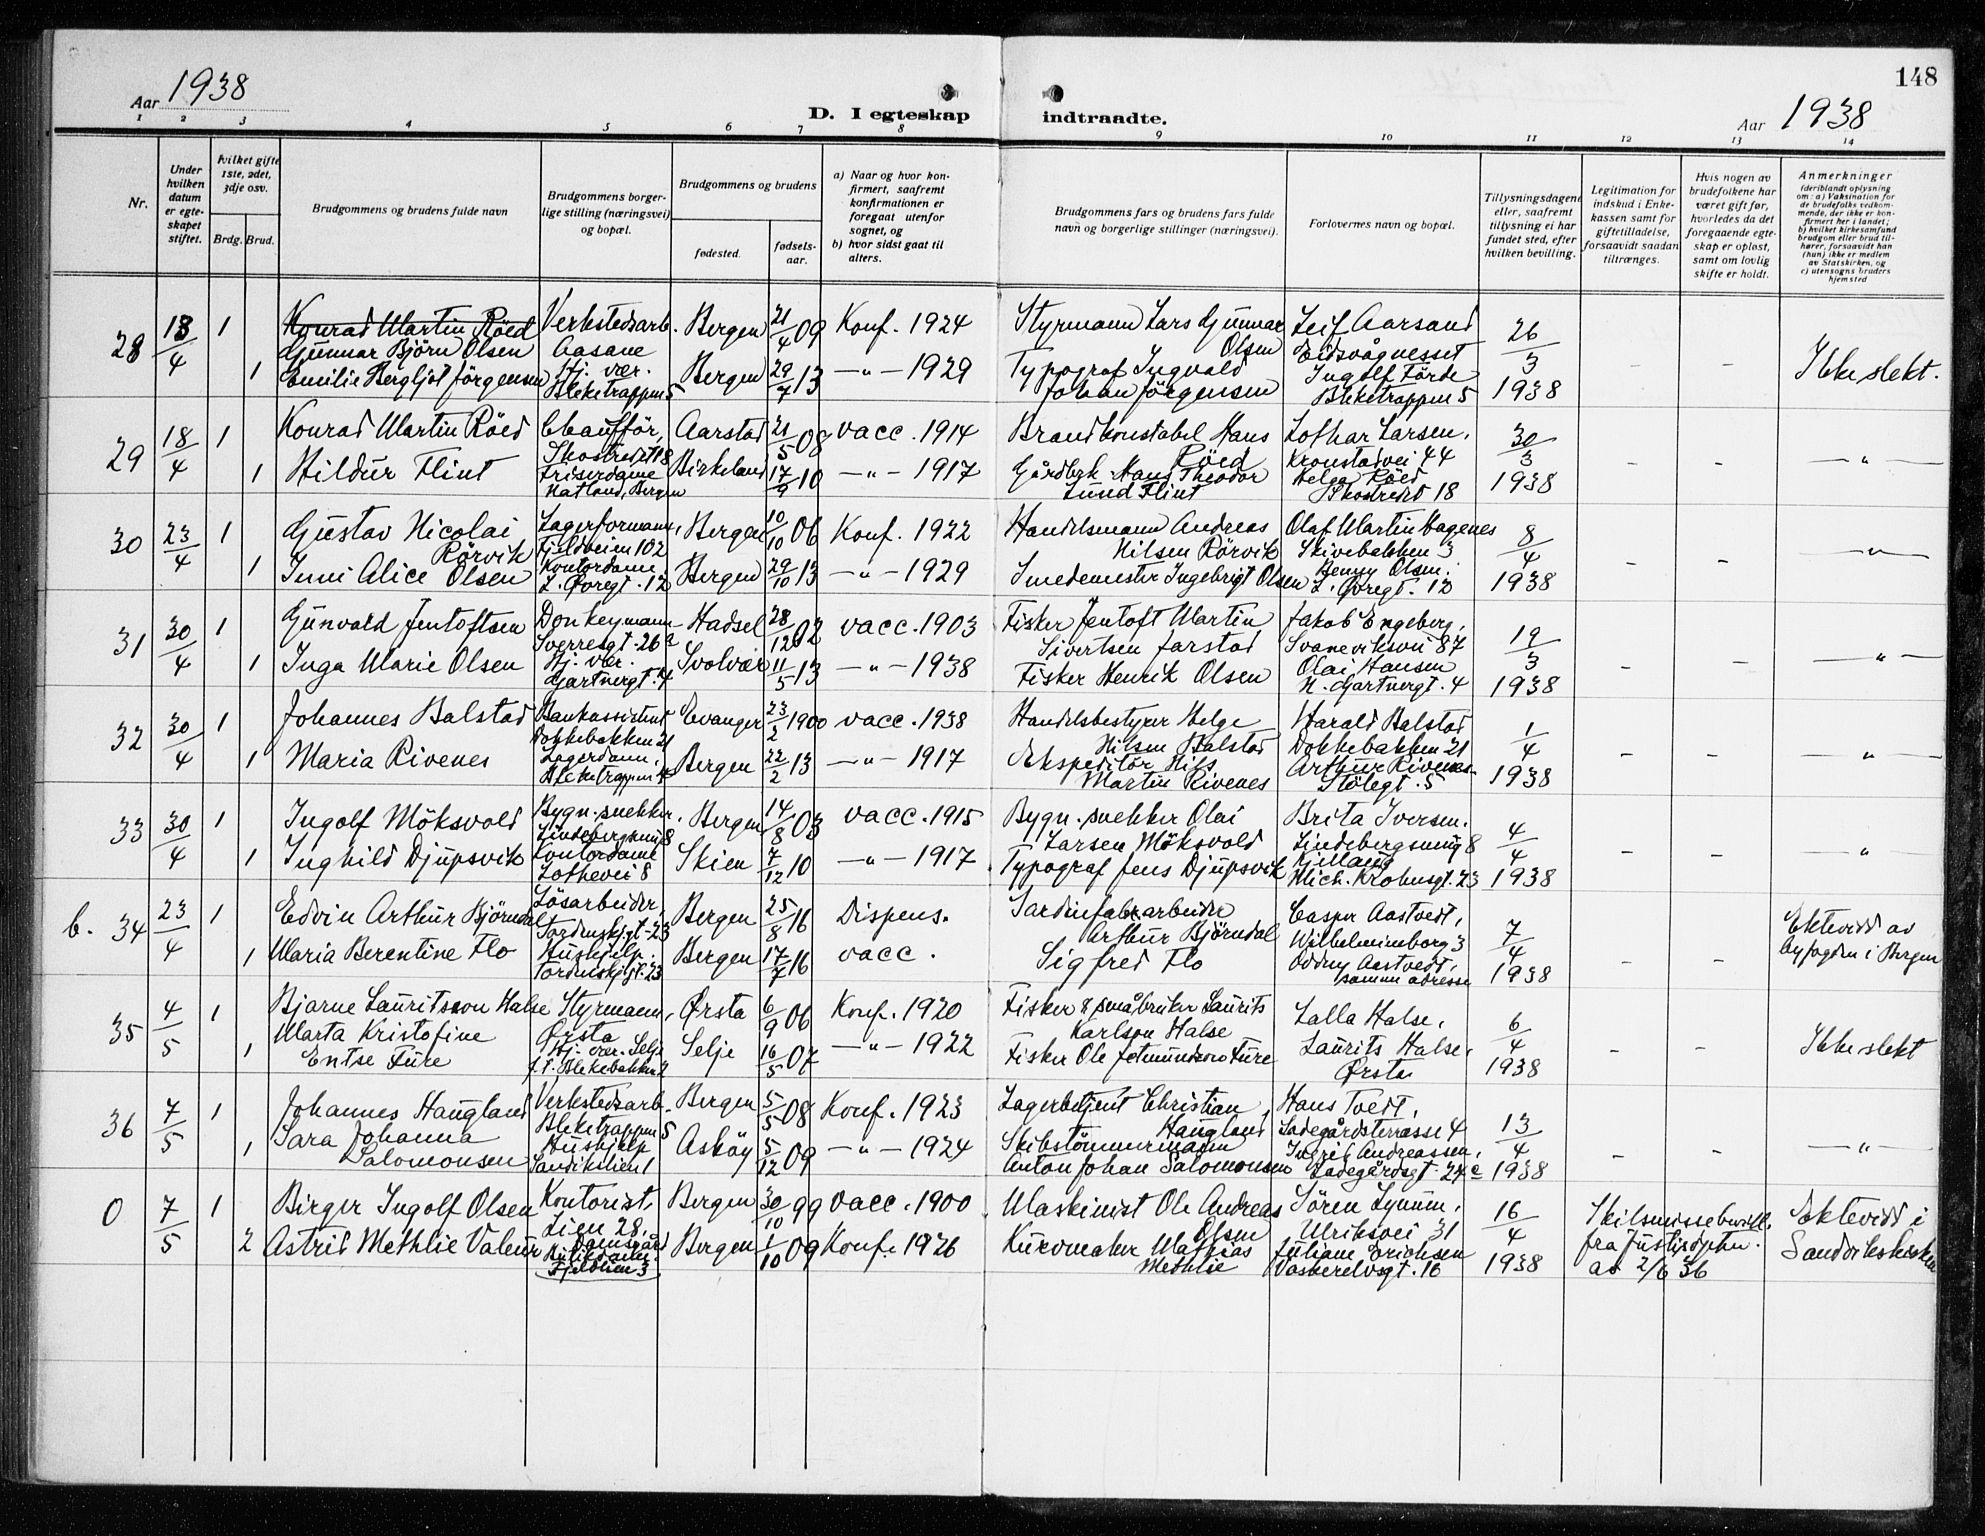 148
Aar 1938
D. I egteskap indtraadte.
Aar 1938
1 2 3 4 5 6 7 8 9 10 11 12 13 14
Nr.
Under hvilken datum er egteskapet stiftet.
hvilket gifte 1ste, 2det, 3dje osv.
Brdg. Brud.
Brudgommens og brudens fulde navn
Brudgommens borgerlige stilling (næringsvei) og bopæl.
Brudgommens og brudens
fødested.
fødselsaar.
a) Naar og hvor konfirmert, saafremt konfirmationen er foregaat utenfor sognet, og
b) hvor sidst gaat til alters.
Brudgommens fars og brudens fars fulde navn og borgerlige stillinger (næringsvei).
Forlovernes navn og bopæl.
Tillysningsdagene eller, saafremt tillysning ei har fundet sted, efter hvilken bevilling.
Legitimation for indskud i Enkekassen samt for giftetilladelse, forsaavidt saadan tiltrænges.
Hvis nogen av brudefolkene har været gift før, hvorledes da det foregaaende egteskap er opløst, samt om lovlig skifte er holdt.
Anmerkninger
(deriblandt oplysning om: a) Vaksination for de brudefolks vedkommende, der ikke er konfirmert her i landet;
b) hvilket kirkesamfund brudgom eller brud tilhører, forsaavidt han (hun) ikke er medlem av Statskirken, og
c) utensogns bruders hjemsted
28 18/4 1 Konrad Martin Röed Verkstedsarb. Bergen 21/4 09 Konf. 1924 Styrmann Lars Gunnar Olsen Leif Aarsand 26/3 1938 - - Ikke slekt.
Gunnar Björn Olsen Aasane Eidsvågnesset
1 Emilie Bergljot Jörgensen Hj. vær. Bleketrappen 5 Bergen 29/7 13 —"— 1929 Typograf Ingvald Johan Jörgensen Ingolf Förde Bleketrappen 5
29 18/4 1 Konrad Martin Röed Chaufför, Skostredet 18 Aarstad 21/5 08 vacc. 1914 Brandkonstabel Hans Röed Lothar Larsen, Kronstadvei 44 30/3 1938 - - —"—
1 Hildur Flint Friserdame Natland, Bergen Birkeland 17/9 10 —"— 1917 Gårdbrk Hans Theodor Lund Flint Helga Röed Skostredet 18
30 23/4 1 Gustav Nicolai Rörvik Lagerformann, Fjeldveien 102 Bergen 10/10 06 Konf. 1922 Handelsmann Andreas Nilsen Rörvik Olaf Martin Hagenes Skivebakken 3 8/4 1938 - - —"—
1 Inni Alice Olsen Kontordame L. Øvregt. 12 Bergen 29/10 13 —"— 1929 Smedemester Ingebrigt Olsen Benny Olsen. L. Øvregt. 12
31 30/4 1 Gunvald Jentoftsen Donkeymann Sverresgt. 26a Hadsel 28/12 02 vacc. 1903 Fisker Jentoft Martin Sivertsen Jarstad Jakob Engeberg, Svaneviksvei 87 19/3 1938 - - —"—
1 Inga Marie Olsen Hj. vær. Gartnergt. 4 Svolvær 11/5 13 —"— 1938 Fisker Henrik Olsen Olai Hansen N. Gartnergt. 4
32 30/4 1 Johannes Balstad Bankassistent Dokkebakken 21 Evanger 23/2 1900 vacc. 1938 Handelsbestyrer Helge Nilsen Balstad Harald Balstad Dokkebakken 21 1/4 1938 - - —"—
1 Maria Rivenes Lagerdame, Bleketrappen 4 Bergen 22/2 13 —"— 1917 Ekspeditör Nils Martin Rivenes Arthur Rivenes Stölegt. 5
33 30/4 1 Ingolf Möksvold Bygn. snekker. Lindebergsmug 8 Bergen 14/8 03 vacc. 1915 Bygn. snekker Olai Larsen Möksvold Brita Iversen. Lindebergsmug 8 4/4 1938 - - —"—
1 Inghild Djupsvik Kontordame Lothevei 8 Skien 7/12 10 —"— 1917 Typograf Jens Djupsvik Mich. Krohnsgt. 23
b. 34 23/4 1 Edvin Arthur Björndal Lösarbeider, Tordenskjgt. 23 Bergen 25/8 16 Dispens. Sardinfabrarbeider Arthur Björndal Casper Aastvedt, Wilhelmineborg 3 7/4 1938 - - Ektevidd av byfogden i Bergen
1 Maria Berentine Flo Hushjelp. Tordenskjgt. 23 Bergen 17/7 16 vacc. Sigfred Flo Oddny Aastvedt, samme adresse
35 4/5 1 Bjarne Lauritsson Halse Styrmann, Ørsta Ørsta 6/9 06 Konf. 1920 Fisker & småbruker Laurits Karlson Halse Lalla Halse, 6/4 1938 - - Ikke slekt
1 Marta Kristofine Entse Fure Hj. vær. Selje f.t. Blekebakken 2 Selje 16/5 07 —"— 1922 Fisker Ole Jetmundson Fure Laurits Halse, Ørsta
36 7/5 1 Johannes Haugland Verkstedsarb. Bleketrappen 5 Bergen 5/5 08 Konf. 1923 Lagerbetjent Christian Haugland Hans Tvedt, Ladegårdsterrasse 4 13/4 1938 - - —"—
1 Sara Johanna Salomonsen Hushjelp Sandikslien 1 Askøy 5/12 09 —"— 1924 Skibstömmermann Anton Johan Salomonsen Ingrid Andreassen, Ladegårdsgt. 24c
0 7/5 1 Birger Ingolf Olsen Kontorist, Lien 28, Damsgård Bergen 30/10 99 vacc. 1900 Maskinist Ole Andreas Olsen Sören Lynum, Ulriksvei 31 16/4 1938 Skilsmissebevill. fra Justisdptm. av 2/6 36 Ektevidd i Sandvikskirken
2 Astrid Methlie Valeur Butikdame, Fjeldlien 3 Bergen 1/10 09 Konf. 1926 Kurvmaker Mathias Methlie Juliane Erichsen Vaskerelvsgt. 16